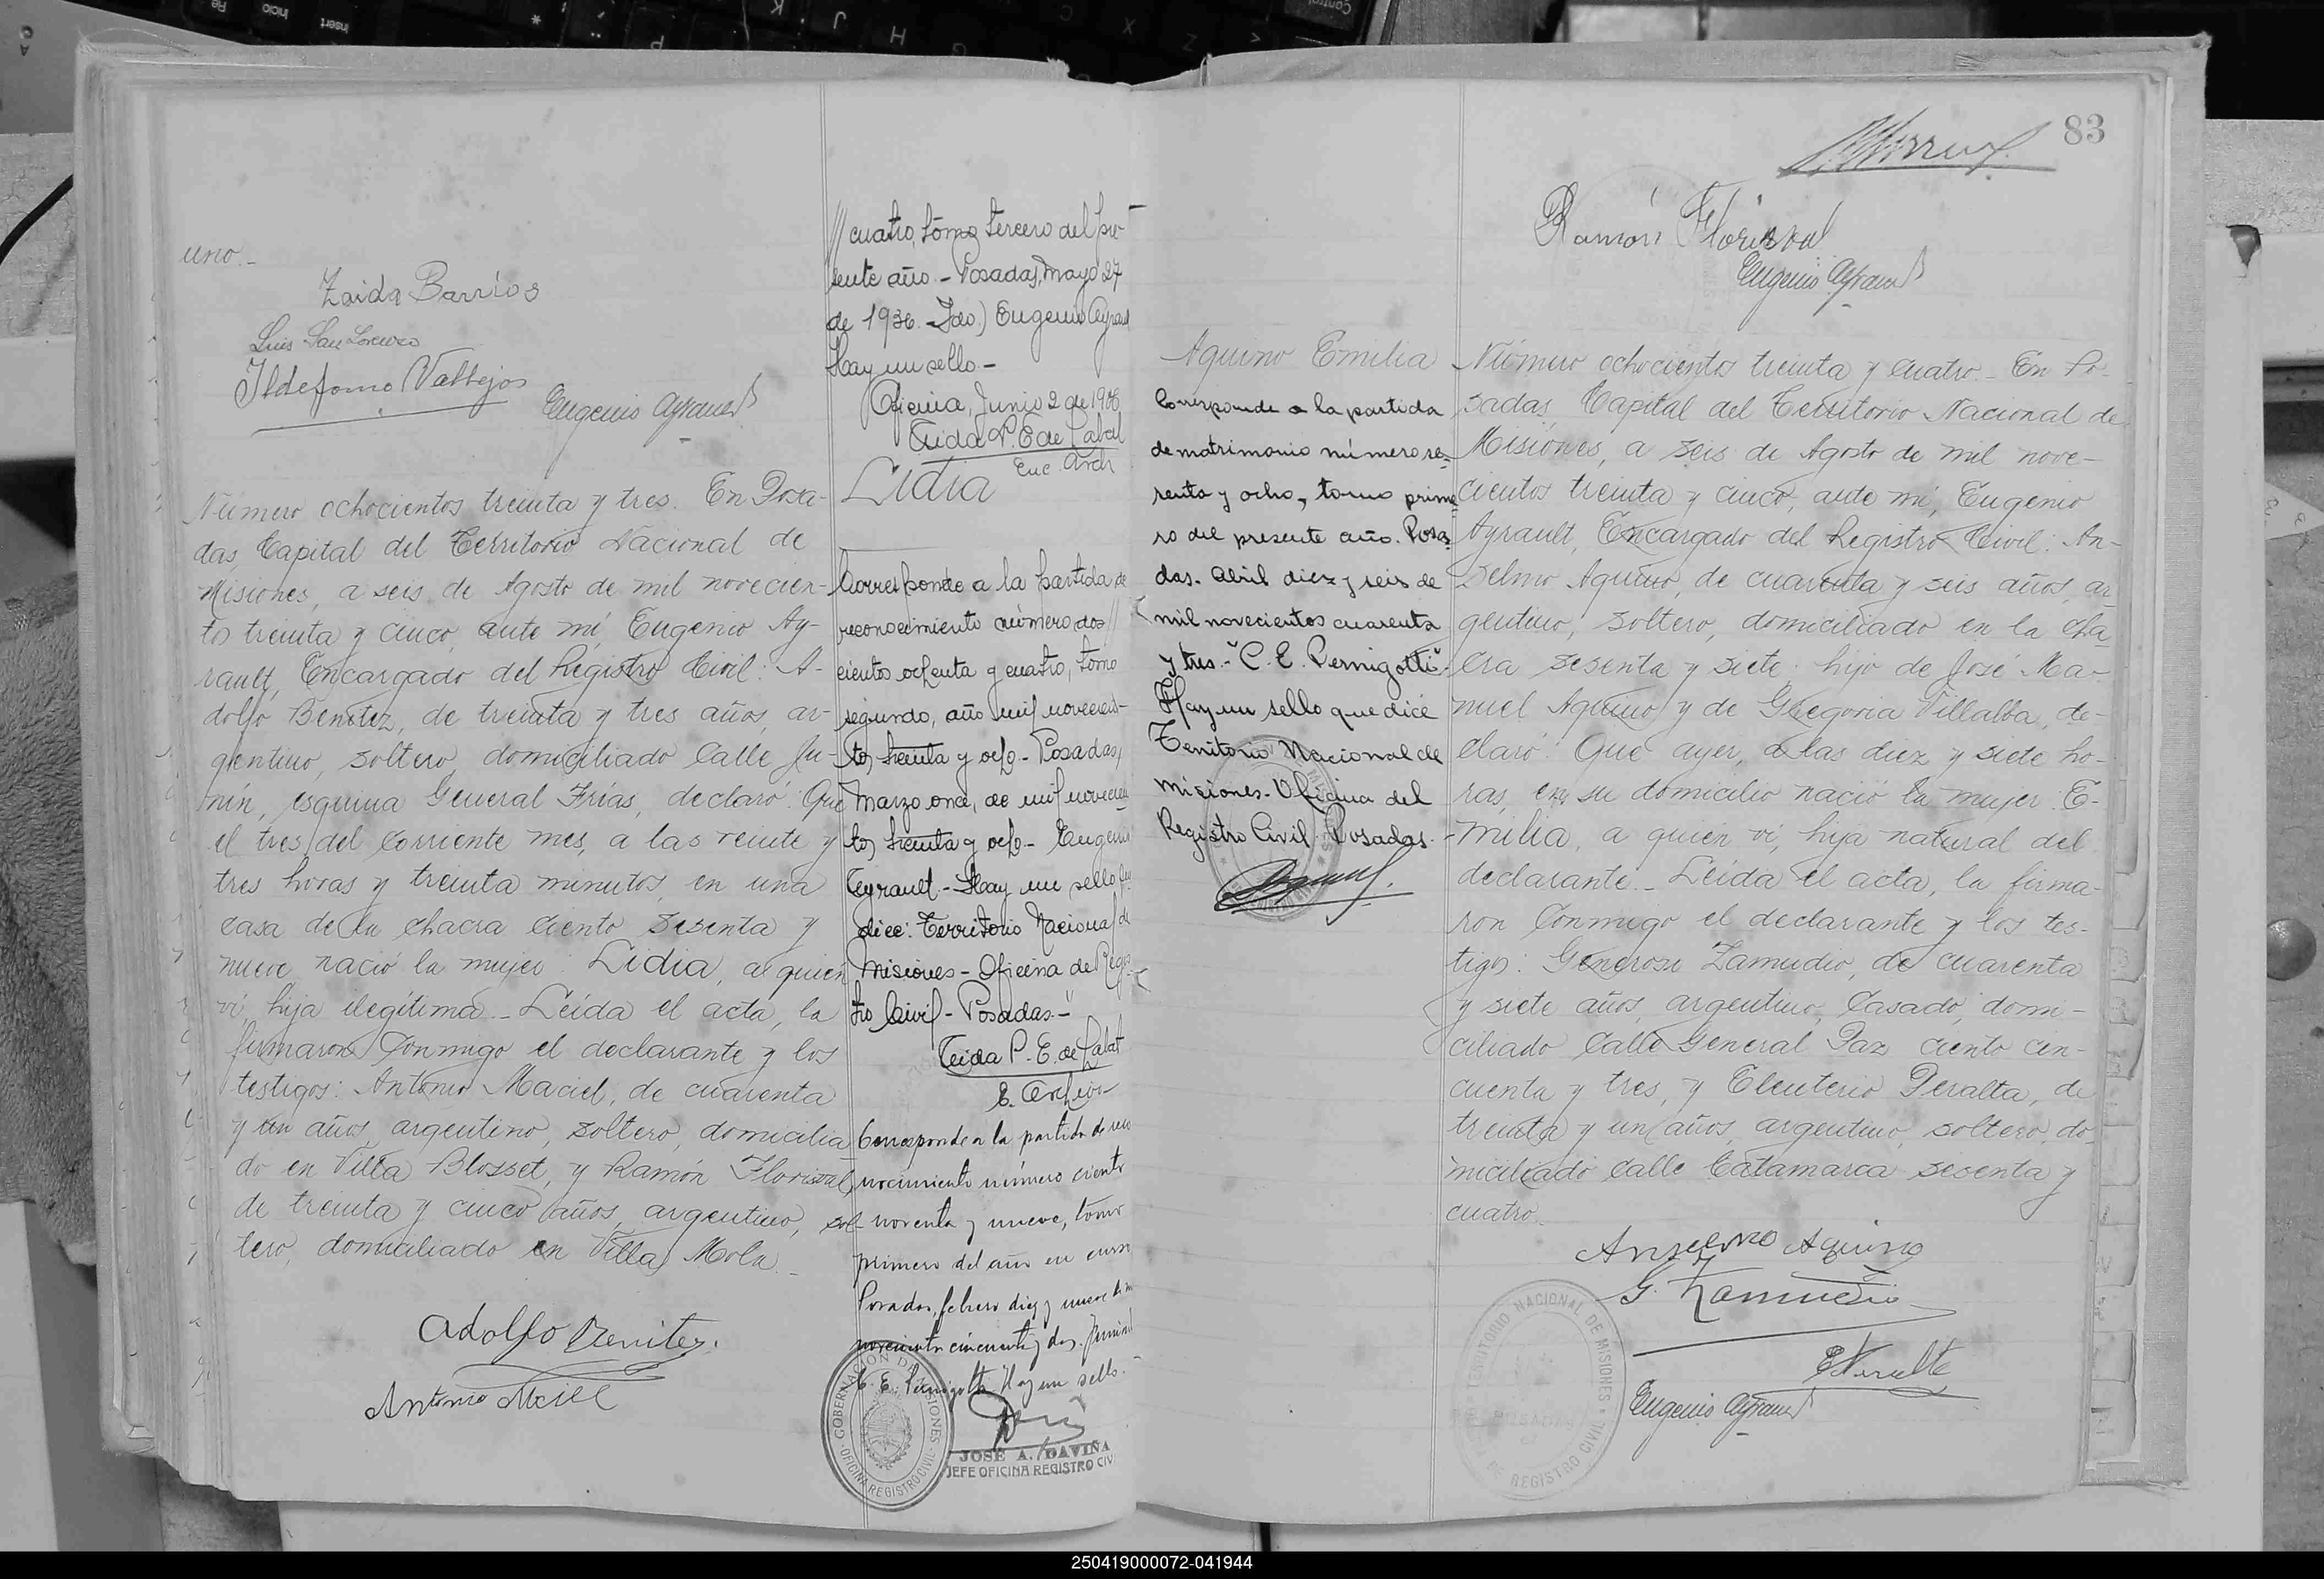 uno.-
Zaida Barrios
Luis San Lorenzo
Ildefonso Vallejos
Eugenio Ayrault
Número ochocientos treinta y tres. En Posa-
das, Capital del Territorio Nacional de
Misiones, a seis de Agosto de mil novecien-
tos treinta y cinco, ante mí, Eugenio Ay-
rault, Encargado del Registro Civil: A-
dolfo Benítez, de treinta y tres años, ar-
gentino, soltero, domiciliado Calle Ju-
nín, esquina General Frías, declaró: Que
el tres del corriente mes, a las veinte y
tres horas y treinta minutos, en una
casa de la chacra ciento sesenta y
nueve, nació la mujer: Lidia, a quien
ví, hija ilegítima.- Leída el acta, la
firmaron conmigo el declarante y los
testigos: Antonio Maciel, de cuarenta
y un años, argentino, soltero, domicilia
do en Villa Blosset, y Ramón Florisval,
de treinta y cinco años, argentino, sol-
tero, domiciliado en Villa Mola.-
Adolfo Benitez.
Antonio Maciel
// cuatro, tomo tercero del pre-
sente año.- Posadas, Mayo 27
de 1936.- Fdo.) Eugenio Ayrault
Hay un sello.-
Oficina, Junio 2 de 1936
Leida P. E. de Labat
Enc. Arch
Lidia
Corresponde a la partida de
reconocimiento número dos//
cientos ochenta y cuatro, tomo
segundo, año mil novecien-
tos treinta y ocho.- Posadas,
Marzo once, de mil novecien
tos treinta y ocho.- Eugenio
Ayrault.- Hay un sello que
dice: Territorio Nacional de
Misiones - Oficina del Regis
tro Civil - Posadas.-"
Leida P. E. de Labat
E. Archivo
Corresponde a la partida de reco
nocimiento número ciento
noventa y nueve, tomo
primero del año en curso
Posadas, febrero diez y nueve de mil
novecientos cincuenta y dos.
C. E. Pernigotti. Hay un sello.-
GOBERNACION DE MISIONES
OFICINA REGISTRO CIVIL
JOSE A. DAVIÑA
JEFE OFICINA REGISTRO CIV
83
Ramón Florisval
Eugenio Ayrault
Aquino Emilia
Corresponde a la partida
de matrimonio número se-
senta y ocho, tomo prime
ro del presente año. Posa
das. Abril diez y seis de
mil novecientos cuarenta
y tres.- "C. E. Pernigotti".
Hay un sello que dice
Territorio Nacional de
Misiones. Oficina del
Registro Civil. Posadas.
Número ochocientos treinta y cuatro.- En Po-
sadas, Capital del Territorio Nacional de
Misiones, a seis de Agosto de mil nove-
cientos treinta y cinco, ante mí, Eugenio
Ayrault, Encargado del Registro Civil: An-
selmo Aquino, de cuarenta y seis años, ar
gentino, soltero, domiciliado en la cha
cra sesenta y siete, hijo de José Ma-
nuel Aquino y de Gregoria Villalba, de-
claró: Que ayer, a las diez y siete ho-
ras, en su domicilio nació la mujer: E-
milia, a quien ví, hija natural del
declarante.- Leída el acta, la firma-
ron conmigo el declarante y los tes-
tigos: Generoso Zamudio, de cuarenta
y siete años, argentino, casado, domi-
ciliado Calle General Paz ciento cin-
cuenta y tres, y Eleuterio Peralta, de
treinta y un años, argentino, soltero, do-
miciliado Calle Catamarca sesenta y
cuatro.
Anselmo Aquino
G. Zamudio
E. Peralta
Eugenio Ayrault
TERRITORIO NACIONAL DE MISIONES
POSADAS
DE REGISTRO CIVIL
250419000072-041944